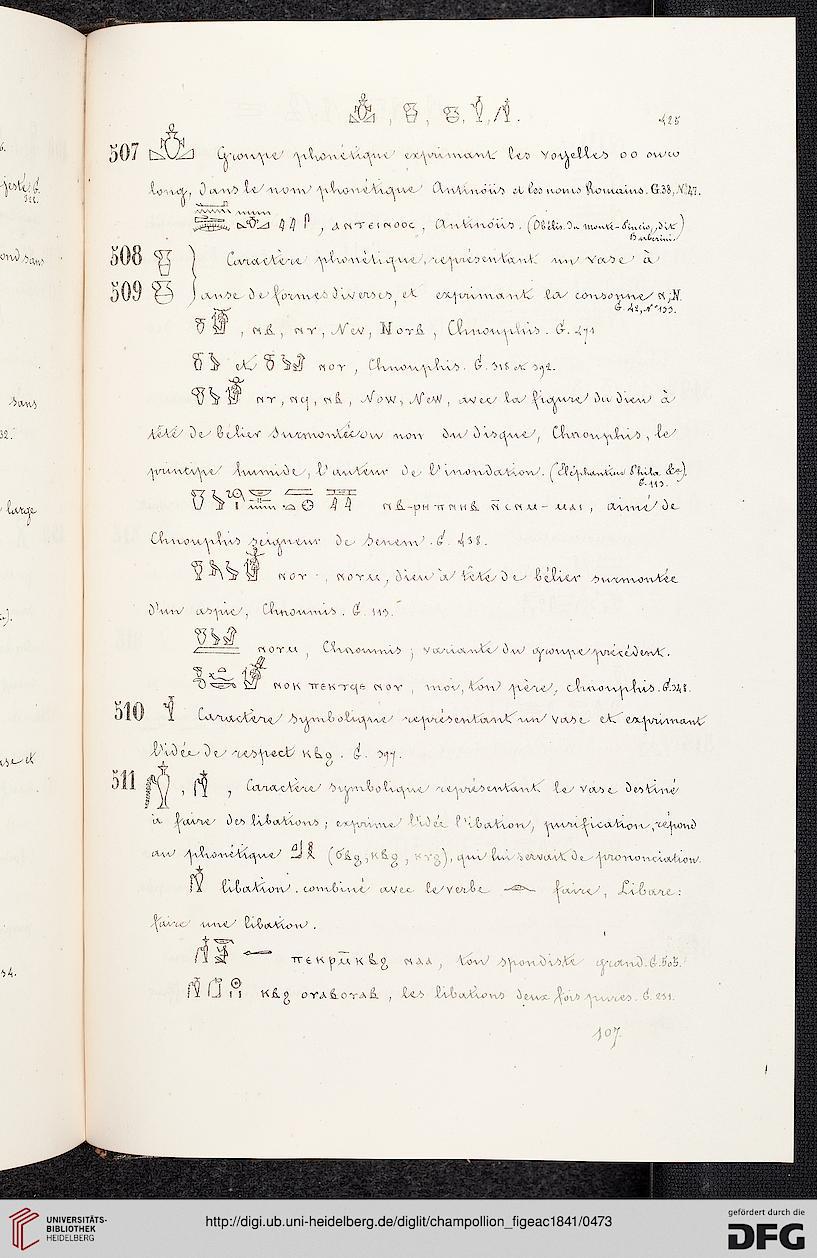 425
507 Groupe phonétique exprimant les voyelles oo ou ω
long, dans le nom phonétique Antinoüs et les noms Romains. G. 38, N° 47.
ⲁⲛⲧⲉⲓⲛⲟⲟⲥ, Antinoüs. (Obélis. du monte-Pincio, dit
Barberini.)
508 Caractère phonétique, représentant un vase à
509 anse de formes diverses, et exprimant la consonne ⲛ, N.
G. 42, N° 133.
, ⲛⲃ, ⲛⲩ, Nev, Noub, Chnouphis. G. 471
et ⲛⲟⲩ, Chnouphis. G. 318 et 392.
ⲛⲩ, ⲛϥ, ⲛⲃ, Now, New, avec la figure du dieu à
tête de bélier surmontée ou non du disque, Chnouphis, le
principe humide, l'auteur de l'inondation. (Eléphantine Phile &a).
G. 113.
aimé de
Chnouphis seigneur de Senem. G. 438.
ⲛⲟⲩ, ⲛⲟⲩⲙ, dieu à tête de bélier surmontée
d'un aspic, Chnoumis. G. 113.
ⲛⲟⲩⲙ, Chnoumis ; variante du groupe précédent.
ⲛⲟⲕ ⲡⲉⲕⲧϥⲉ ⲛⲟⲩ, moi, ton père, chnouphis. G. 348.
510 Caractère symbolique représentant un vase et exprimant
l'idée de respect ⲕⲃϩ. G. 397.
511 , , Caractère symbolique représentant le vase destiné
à faire des libations ; exprime l'idée libation, purification, répond
au phonétique (ϭⲃϩ, ⲕⲃϩ, ⲕⲩϩ), qui lui servait de prononciation.
libation. combiné avec le verbe faire, Libare :
faire une libation.
ⲡⲉⲕⲣⲙ̄ⲕⲃϩ ⲛⲁⲁ, ton spondiste grand. G. 505.
ⲕⲃϩ ⲟⲩⲁⲃⲟⲩⲁⲃ, les libations deux fois pures. G. 231.
107.
UNIVERSITÄTS-
BIBLIOTHEK
HEIDELBERG
http://digi.ub.uni-heidelberg.de/diglit/champollion_figeac1841/0473
gefördert durch die
DFG